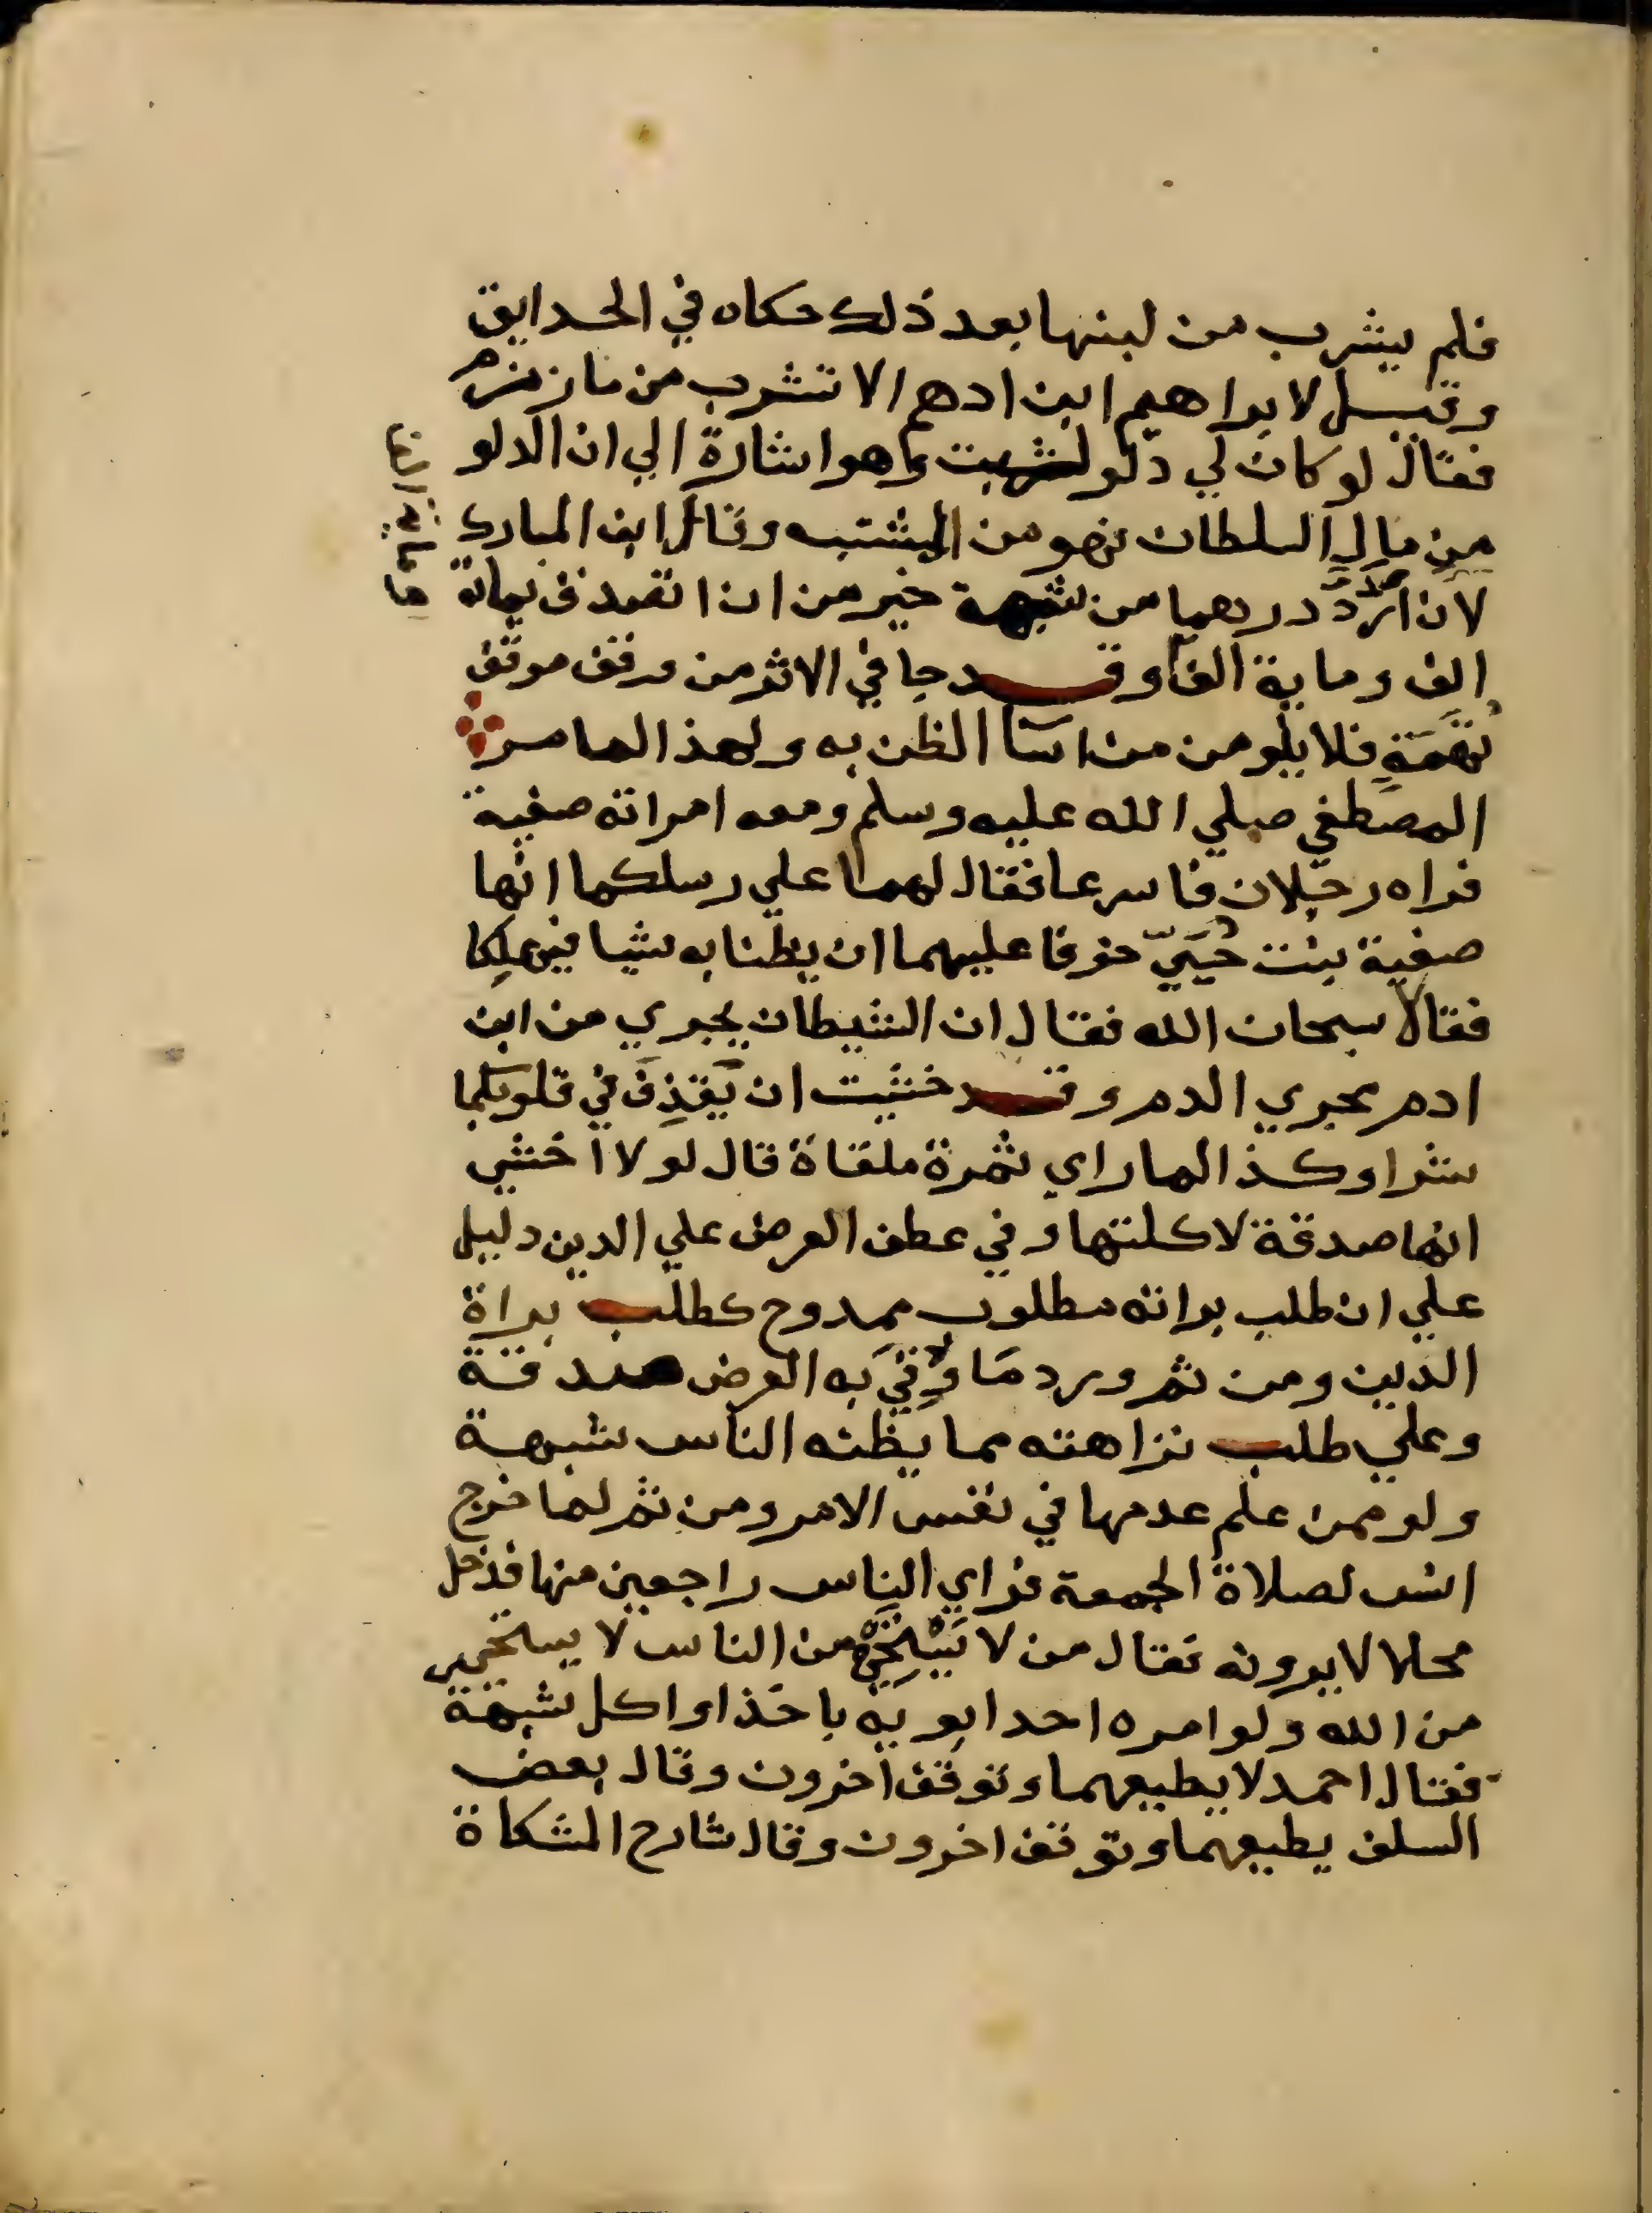 فلم يشرب من لبنها بعد ذلك حكاه في الحدايق
وقيل لابراهيم ابن ادهم الا تشرب من ما زمزم
فقال لو كان لي دلو لشربت وهو اشارة الي ان الدلو
من مال السلطان فهو من المشتبه وقال ابن المبارك
لان ارد درهما من شبهة خير من ان اتصدق بماية
الف وماية الف وقد جا في الاثر من وقف موقف
تهمة فلا يلومن من اسا الظن به ولهذا لما مر
المصطفي صلي الله عليه وسلم ومعه امراته صفية
فراه رجلان فاسرعا فقال لهما علي رسلكما انها
صفية بنت حُيَيّ خوفا عليهما ان يظنا به شيا فيهلكا
فقالا سبحان الله فقال ان الشيطان يجري من ابن
ادم مجري الدم وقد خشيت ان يَقذِفَ في قلوبكما
شرا وكذا لما راي تمرة ملقاة قال لولا اخشي
انها صدقة لاكلتها وفي عطف العرض علي الدين دليل
علي ان طلب براته مطلوب ممدوح كطلب براة
الدين ومن ثم ورد مَا وُقِيَ به العرض صدقة
وعلي طلب نزاهته مما يظنه الناس شبهة
ولو ممن علم عدمها في نفس الامر ومن ثم لما خرج
انس لصلاة الجمعة فراي الناس راجعين منها فدخل
محلا لا يرونه فقال من لا يستحي من الناس لا يستحي
من الله ولو امره احد ابويه باخذ او اكل شبهة
فقال احمد لا يطيعهما وتوقف اخرون وقال بعض
السلف يطيعهما وتوقف اخرون وقال شارح المشكاة